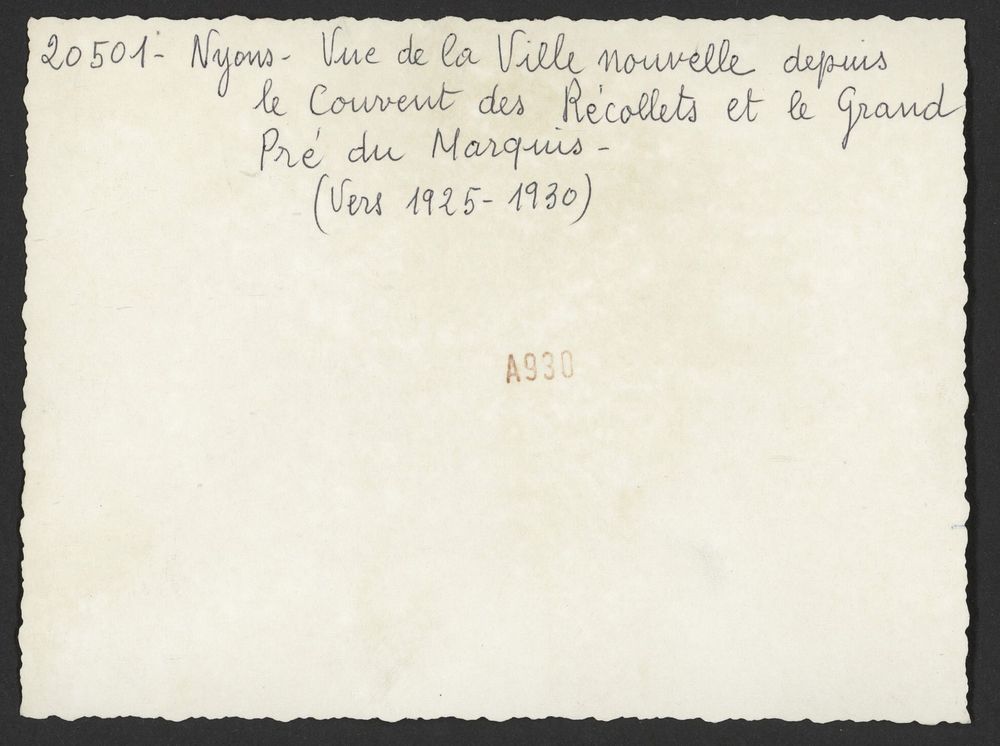 20501- Nyons- Vue de la Ville nouvelle depuis
le Couvent des Récollets et le Grand
Pré du Marquis-
(Vers 1925-1930)
A930